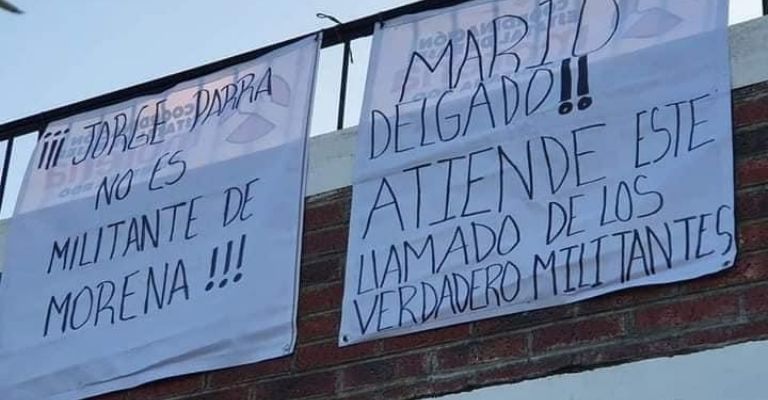 ¡¡¡ JORGE PARRA
NO ES
MILITANTE DE
MORENA !!!
MARIO
DELGADO!!
ATIENDE ESTE
LLAMADO DE LOS
VERDADERO MILITANTES